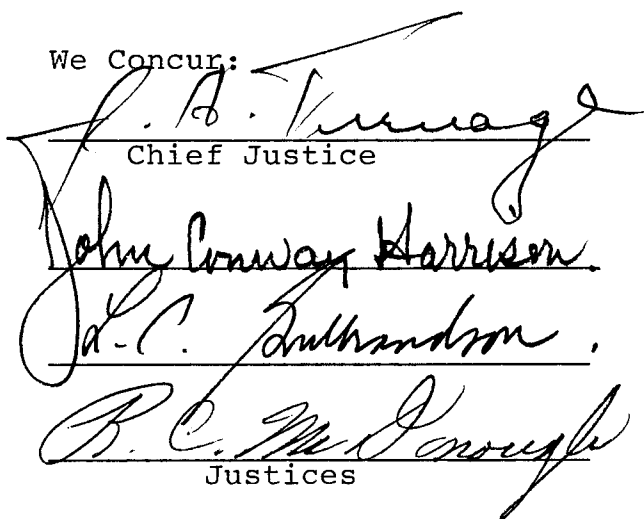 We Concur:
J. A. Turnage
Chief Justice
John Conway Harrison.
L. C. Gulbrandson.
R. C. McDonough
Justices